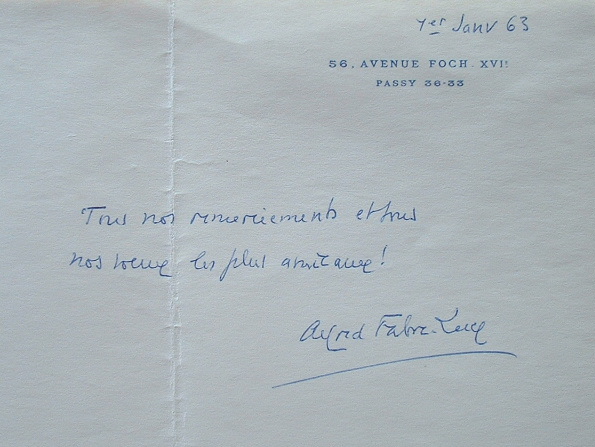 1er Janv 63
56, AVENUE FOCH. XVIE
PASSY 36-33
Tous nos remerciements et tous
nos voeux les plus amicaux !
Alfred Fabre-Luce